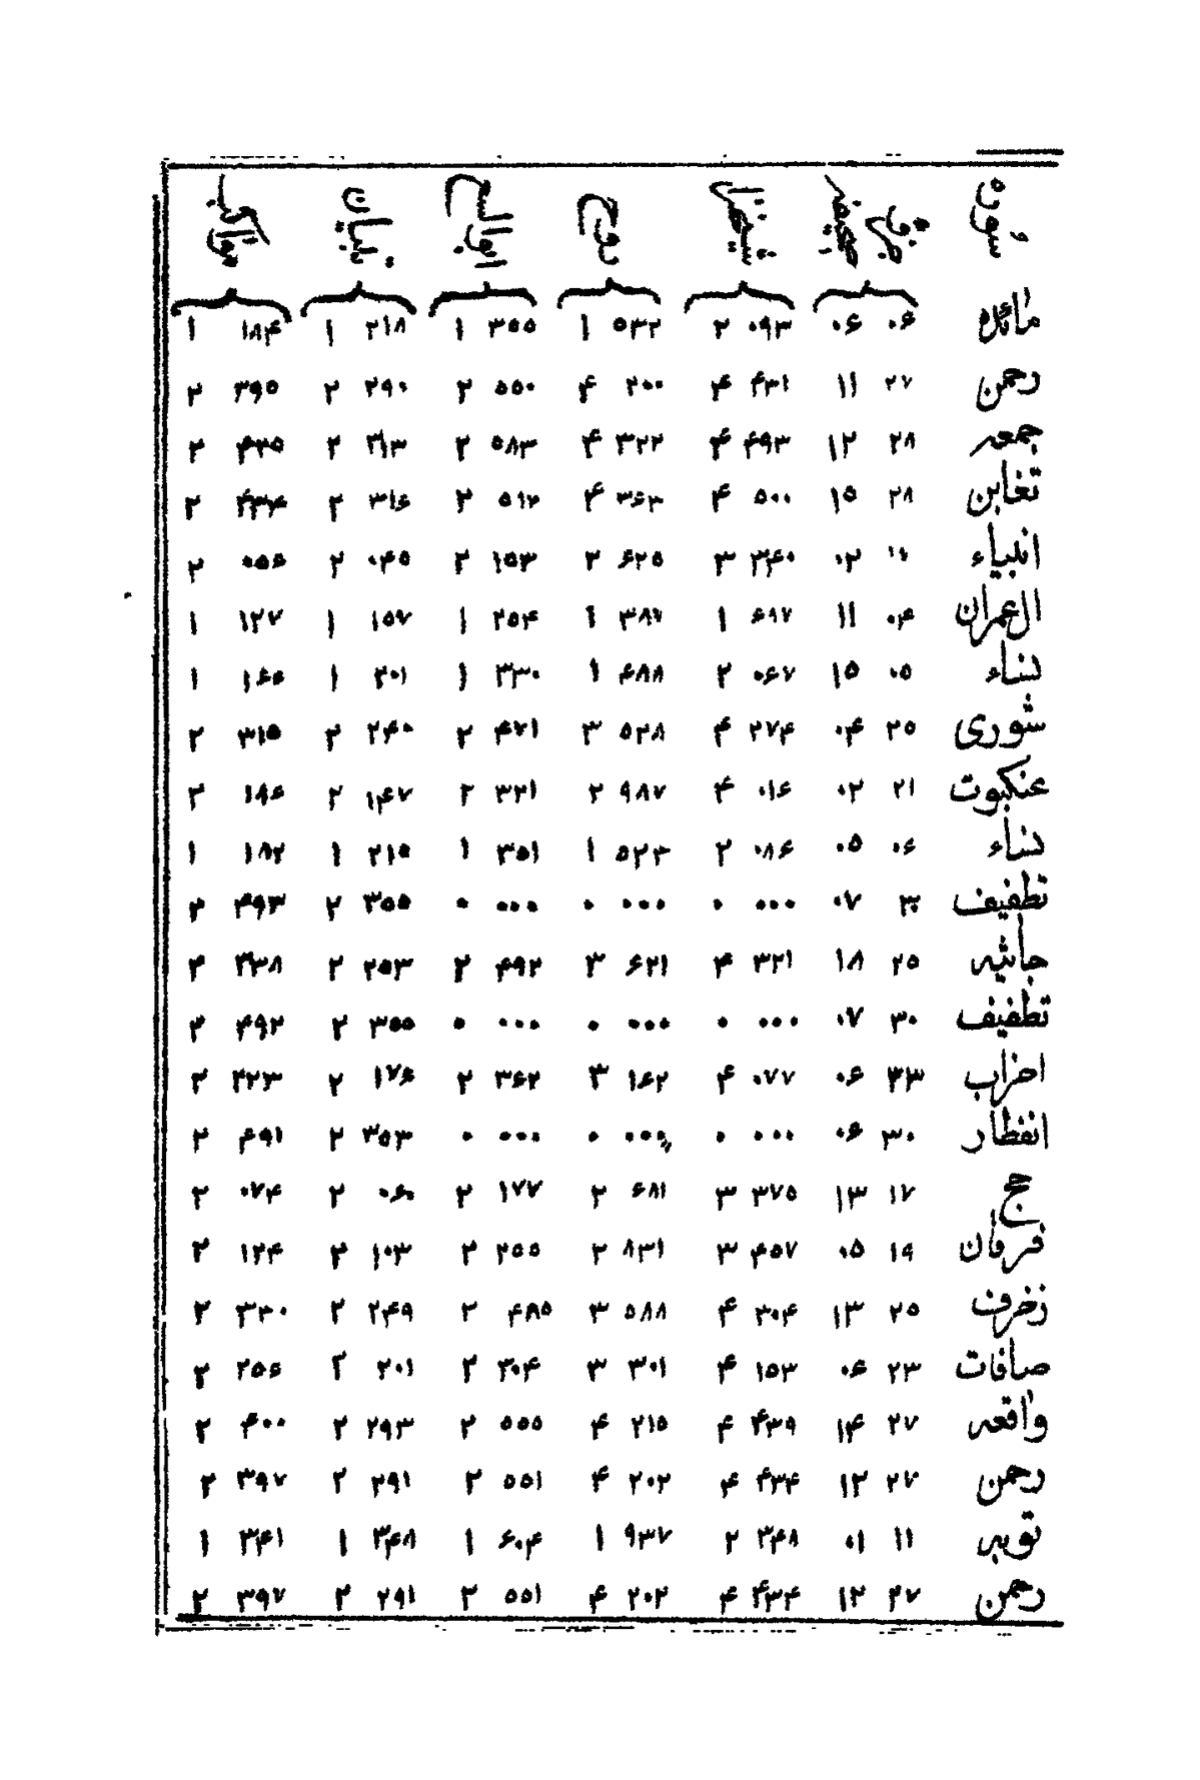 سوره جزؤ صحيفه شيخزاده روح ابو السعود تبيان مواكب
مائده ۰۶ ۰۶ ۰۹۳ ۲ ۵۳۲ ۱ ۳۵۵ ۱ ۲۱۸ ۱ ۱۸۴ ۱
رحمن ۲۷ ۱۱ ۴۳۱ ۴ ۲۰۰ ۴ ۵۵۰ ۲ ۲۹۰ ۲ ۳۹۵ ۲
جمعه ۲۸ ۱۲ ۴۹۳ ۴ ۳۲۲ ۴ ۵۸۳ ۲ ۳۱۳ ۲ ۴۳۵ ۲
تغابن ۲۸ ۱۵ ۵۰۰ ۴ ۳۶۳ ۴ ۵۱۲ ۲ ۳۱۶ ۲ ۴۳۴ ۲
انبياء ۰۲ ۳۴۰ ۳ ۶۲۵ ۲ ۱۵۳ ۲ ۰۴۵ ۲ ۰۵۶ ۲
ال عمران ۰۴ ۱۱ ۶۹۷ ۱ ۳۸۷ ۱ ۲۵۴ ۱ ۱۵۷ ۱ ۱۲۷ ۱
نساء ۰۵ ۱۵ ۰۶۷ ۲ ۶۸۸ ۱ ۳۳۰ ۱ ۲۰۱ ۱ ۱۶۶ ۱
شورى ۲۵ ۰۴ ۲۷۴ ۴ ۵۲۸ ۳ ۴۷۱ ۲ ۲۴۰ ۲ ۳۱۵ ۲
عنكبوت ۲۱ ۰۲ ۰۱۶ ۴ ۹۸۷ ۲ ۳۲۱ ۲ ۱۴۷ ۲ ۱۸۶ ۲
نساء ۰۶ ۰۵ ۰۸۶ ۲ ۵۲۳ ۱ ۳۵۱ ۱ ۲۱۵ ۱ ۱۸۲ ۱
تطفيف ۳۰ ۰۷ ۰۰۰ ۰ ۰۰۰ ۰ ۰۰۰ ۰ ۳۵۵ ۲ ۴۹۳ ۲
جاثيه ۲۵ ۱۸ ۳۲۱ ۴ ۶۲۱ ۳ ۴۹۲ ۲ ۲۵۳ ۲ ۳۳۸ ۲
تطفيف ۳۰ ۰۷ ۰۰۰ ۰ ۰۰۰ ۰ ۰۰۰ ۰ ۳۵۵ ۲ ۴۹۲ ۲
احزاب ۲۲ ۰۶ ۰۷۷ ۴ ۱۶۲ ۳ ۳۶۲ ۲ ۱۷۶ ۲ ۲۲۳ ۲
انفطار ۳۰ ۰۶ ۰۰۰ ۰ ۰۰۰ ۰ ۰۰۰ ۰ ۳۵۳ ۲ ۴۹۱ ۲
حج ۱۷ ۱۳ ۳۷۵ ۳ ۶۸۱ ۲ ۱۷۷ ۲ ۰۶۰ ۲ ۰۷۴ ۲
فرقان ۱۹ ۰۵ ۴۵۷ ۳ ۸۳۱ ۲ ۲۵۵ ۲ ۱۰۳ ۲ ۱۲۴ ۲
زخرف ۲۵ ۱۳ ۳۰۴ ۴ ۵۸۸ ۳ ۴۸۵ ۲ ۲۴۹ ۲ ۳۳۰ ۲
صافات ۲۳ ۰۶ ۱۵۳ ۴ ۳۰۱ ۳ ۴۰۴ ۲ ۲۰۱ ۲ ۲۵۶ ۲
واقعه ۲۷ ۱۴ ۴۳۹ ۴ ۲۱۵ ۴ ۵۵۵ ۲ ۲۹۳ ۲ ۴۰۰ ۲
رحمن ۲۷ ۱۲ ۴۳۴ ۴ ۲۰۲ ۴ ۵۵۱ ۲ ۲۹۱ ۲ ۳۹۷ ۲
توبه ۱۱ ۰۱ ۳۴۸ ۲ ۹۳۷ ۱ ۶۰۴ ۱ ۳۴۸ ۱ ۳۴۱ ۱
رحمن ۲۷ ۱۲ ۴۳۴ ۴ ۲۰۲ ۴ ۵۵۱ ۲ ۲۹۱ ۲ ۳۹۷ ۲